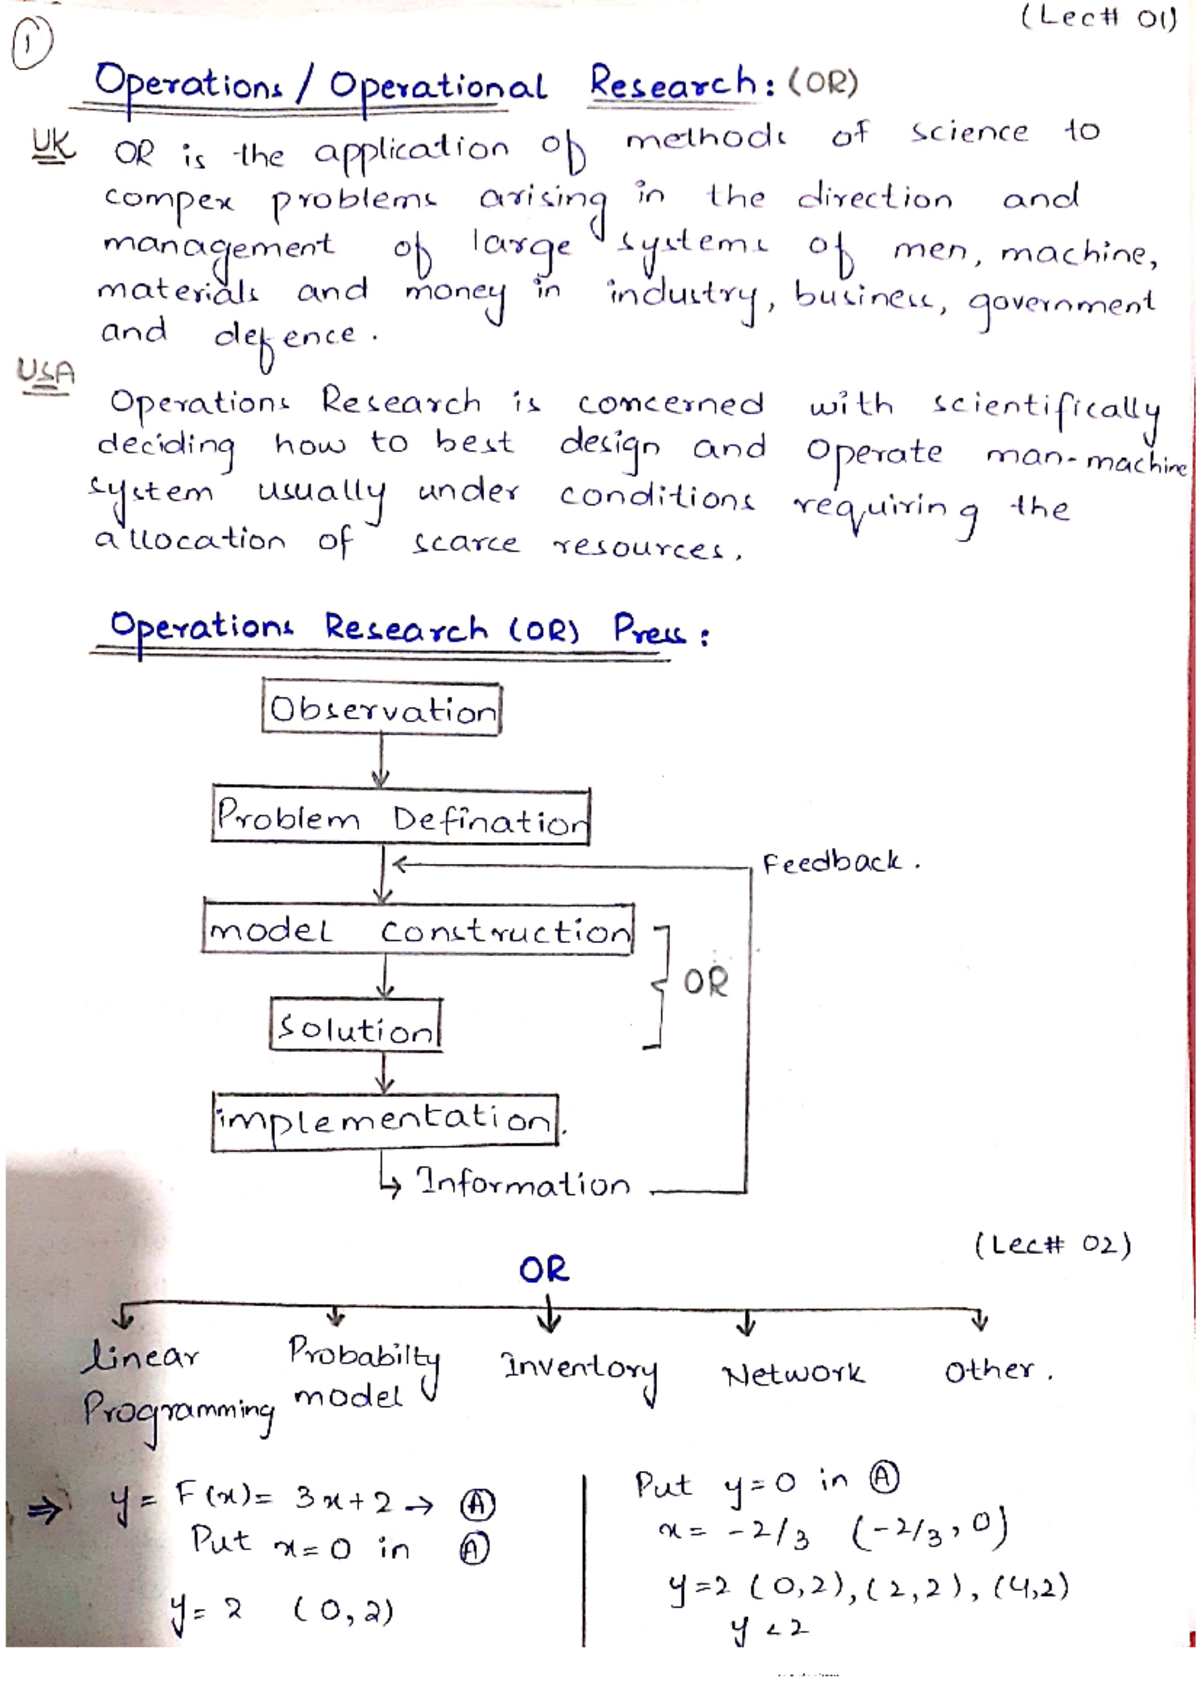 (Lec# 01)
1
Operations / Operational Research: (OR)
UK OR is the application of methods of science to
compex problems arising in the direction and
management of large systems of men, machine,
materials and money in industry, business, government
and defence.
USA
Operations Research is concerned with scientifically
deciding how to best design and operate man-machine
system usually under conditions requiring the
allocation of scarce resources.
Operations Research (OR) Press:
Observation
Problem Defination
Feedback.
model construction
OR
Solution
implementation.
↳ Information
(Lec# 02)
OR
linear Programming
Probabilty model
Inventory
Network
Other.
⇒ y = F(x) = 3x+2 → Ⓐ
Put x=0 in Ⓐ
y = 2 (0,2)
Put y=0 in Ⓐ
x = -2/3 (-2/3, 0)
y=2 (0,2), (2,2), (4,2)
y < 2